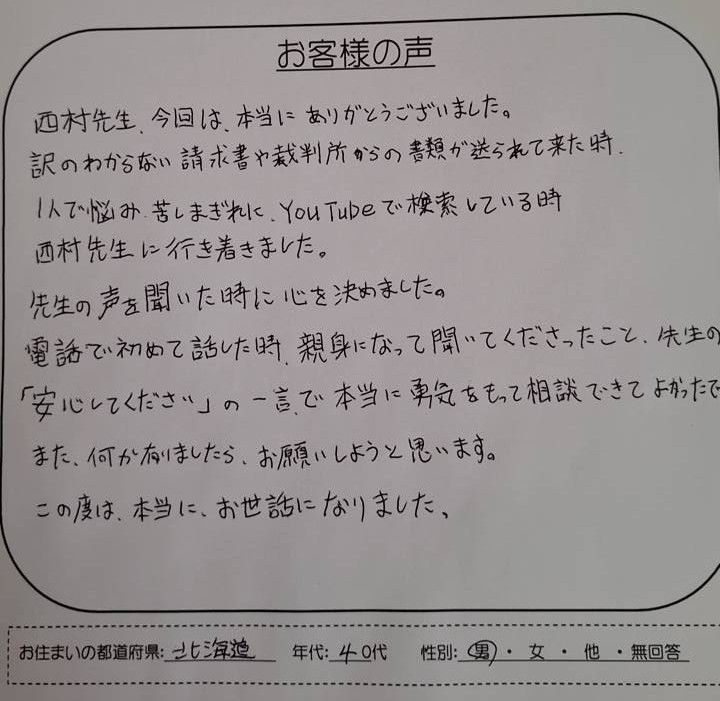 お客様の声
西村先生、今回は、本当にありがとうございました。
訳のわからない請求書や裁判所からの書類が送られて来た時、
1人で悩み、苦しまぎれに、YouTubeで検索している時
西村先生に行き着きました。
先生の声を聞いた時に心を決めました。
電話で初めて話した時、親身になって聞いてくださったこと、先生の
「安心してください」の一言で本当に勇気をもって相談できてよかったで
また、何か有りましたら、お願いしようと思います。
この度は、本当に、お世話になりました、
お住まいの都道府県: 北海道 年代: 40代 性別: 男・女・他・無回答